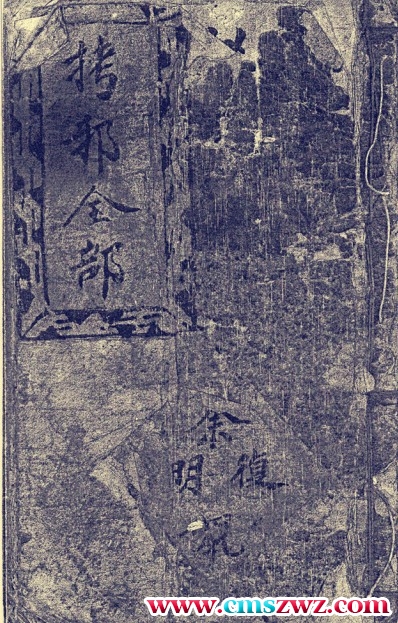 拷邪全部
余
復
明
www.cmszwz.com